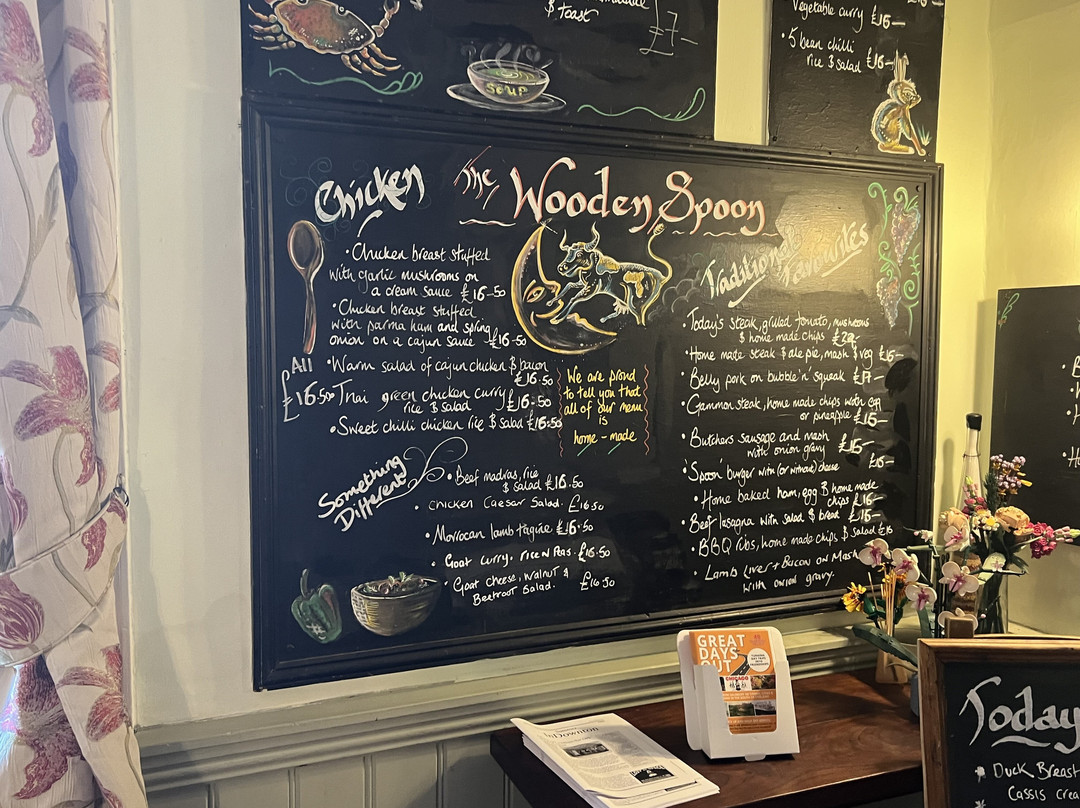 & toast £7-
SOUP
Vegetable curry £16-
• 5 bean chilli
rice & salad £16-
The Wooden Spoon
Chicken
• Chicken breast stuffed
with garlic mushrooms on
a cream sauce £16-50
• Chicken breast stuffed
with parma ham and spring
onion on a cajun sauce £16-50
All
£16.50
• Warm salad of cajun chicken & bacon
£16.50
Thai green chicken curry
rice & salad £16-50
• Sweet chilli chicken rice & salad £16-50
We are proud
to tell you that
all of our menu
is
home-made
Something
Different
• Beef madras, rice
& salad £16.50
• chicken Caesar Salad. £16.50
• Morrocan lamb tagine £16.50
• Goat curry. rice N Peas. £16.50
• Goat cheese, walnut &
Beetroot Salad. £16.50
Traditional
Favourites
• Today's steak, grilled tomato, mushrooms
& home made chips
• Home made steak & ale pie, mash & veg £16-
• Belly pork on bubble 'n' squeak £17-
• Gammon steak, home made chips with egg
or pineapple £16-
• Butchers sausage and mash
with onion gravy £16-
• 'Spoon' burger with (or without) cheese £16-
• Home baked ham, egg & home made
chips £16-
• Beef lasagna with salad & bread £16-
• BBQ ribs, home made chips & salad £16
• Lamb Liver + Bacon on Mash
with onion gravy.
GREAT
DAYS
OUT
CHICAGO
Downton
Today
Duck Breast
Cassis crea